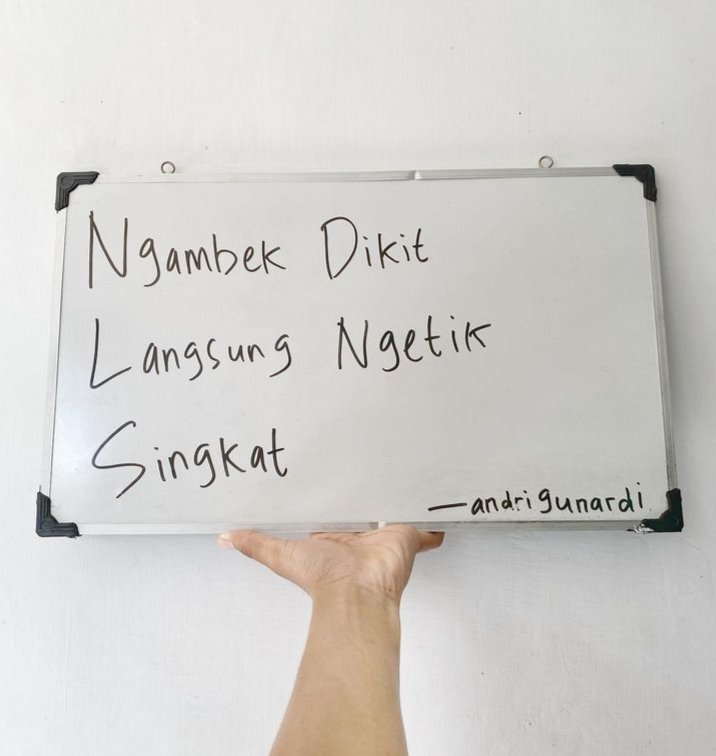 Ngambek Dikit
Langsung Ngetik
Singkat
—andrigunardi